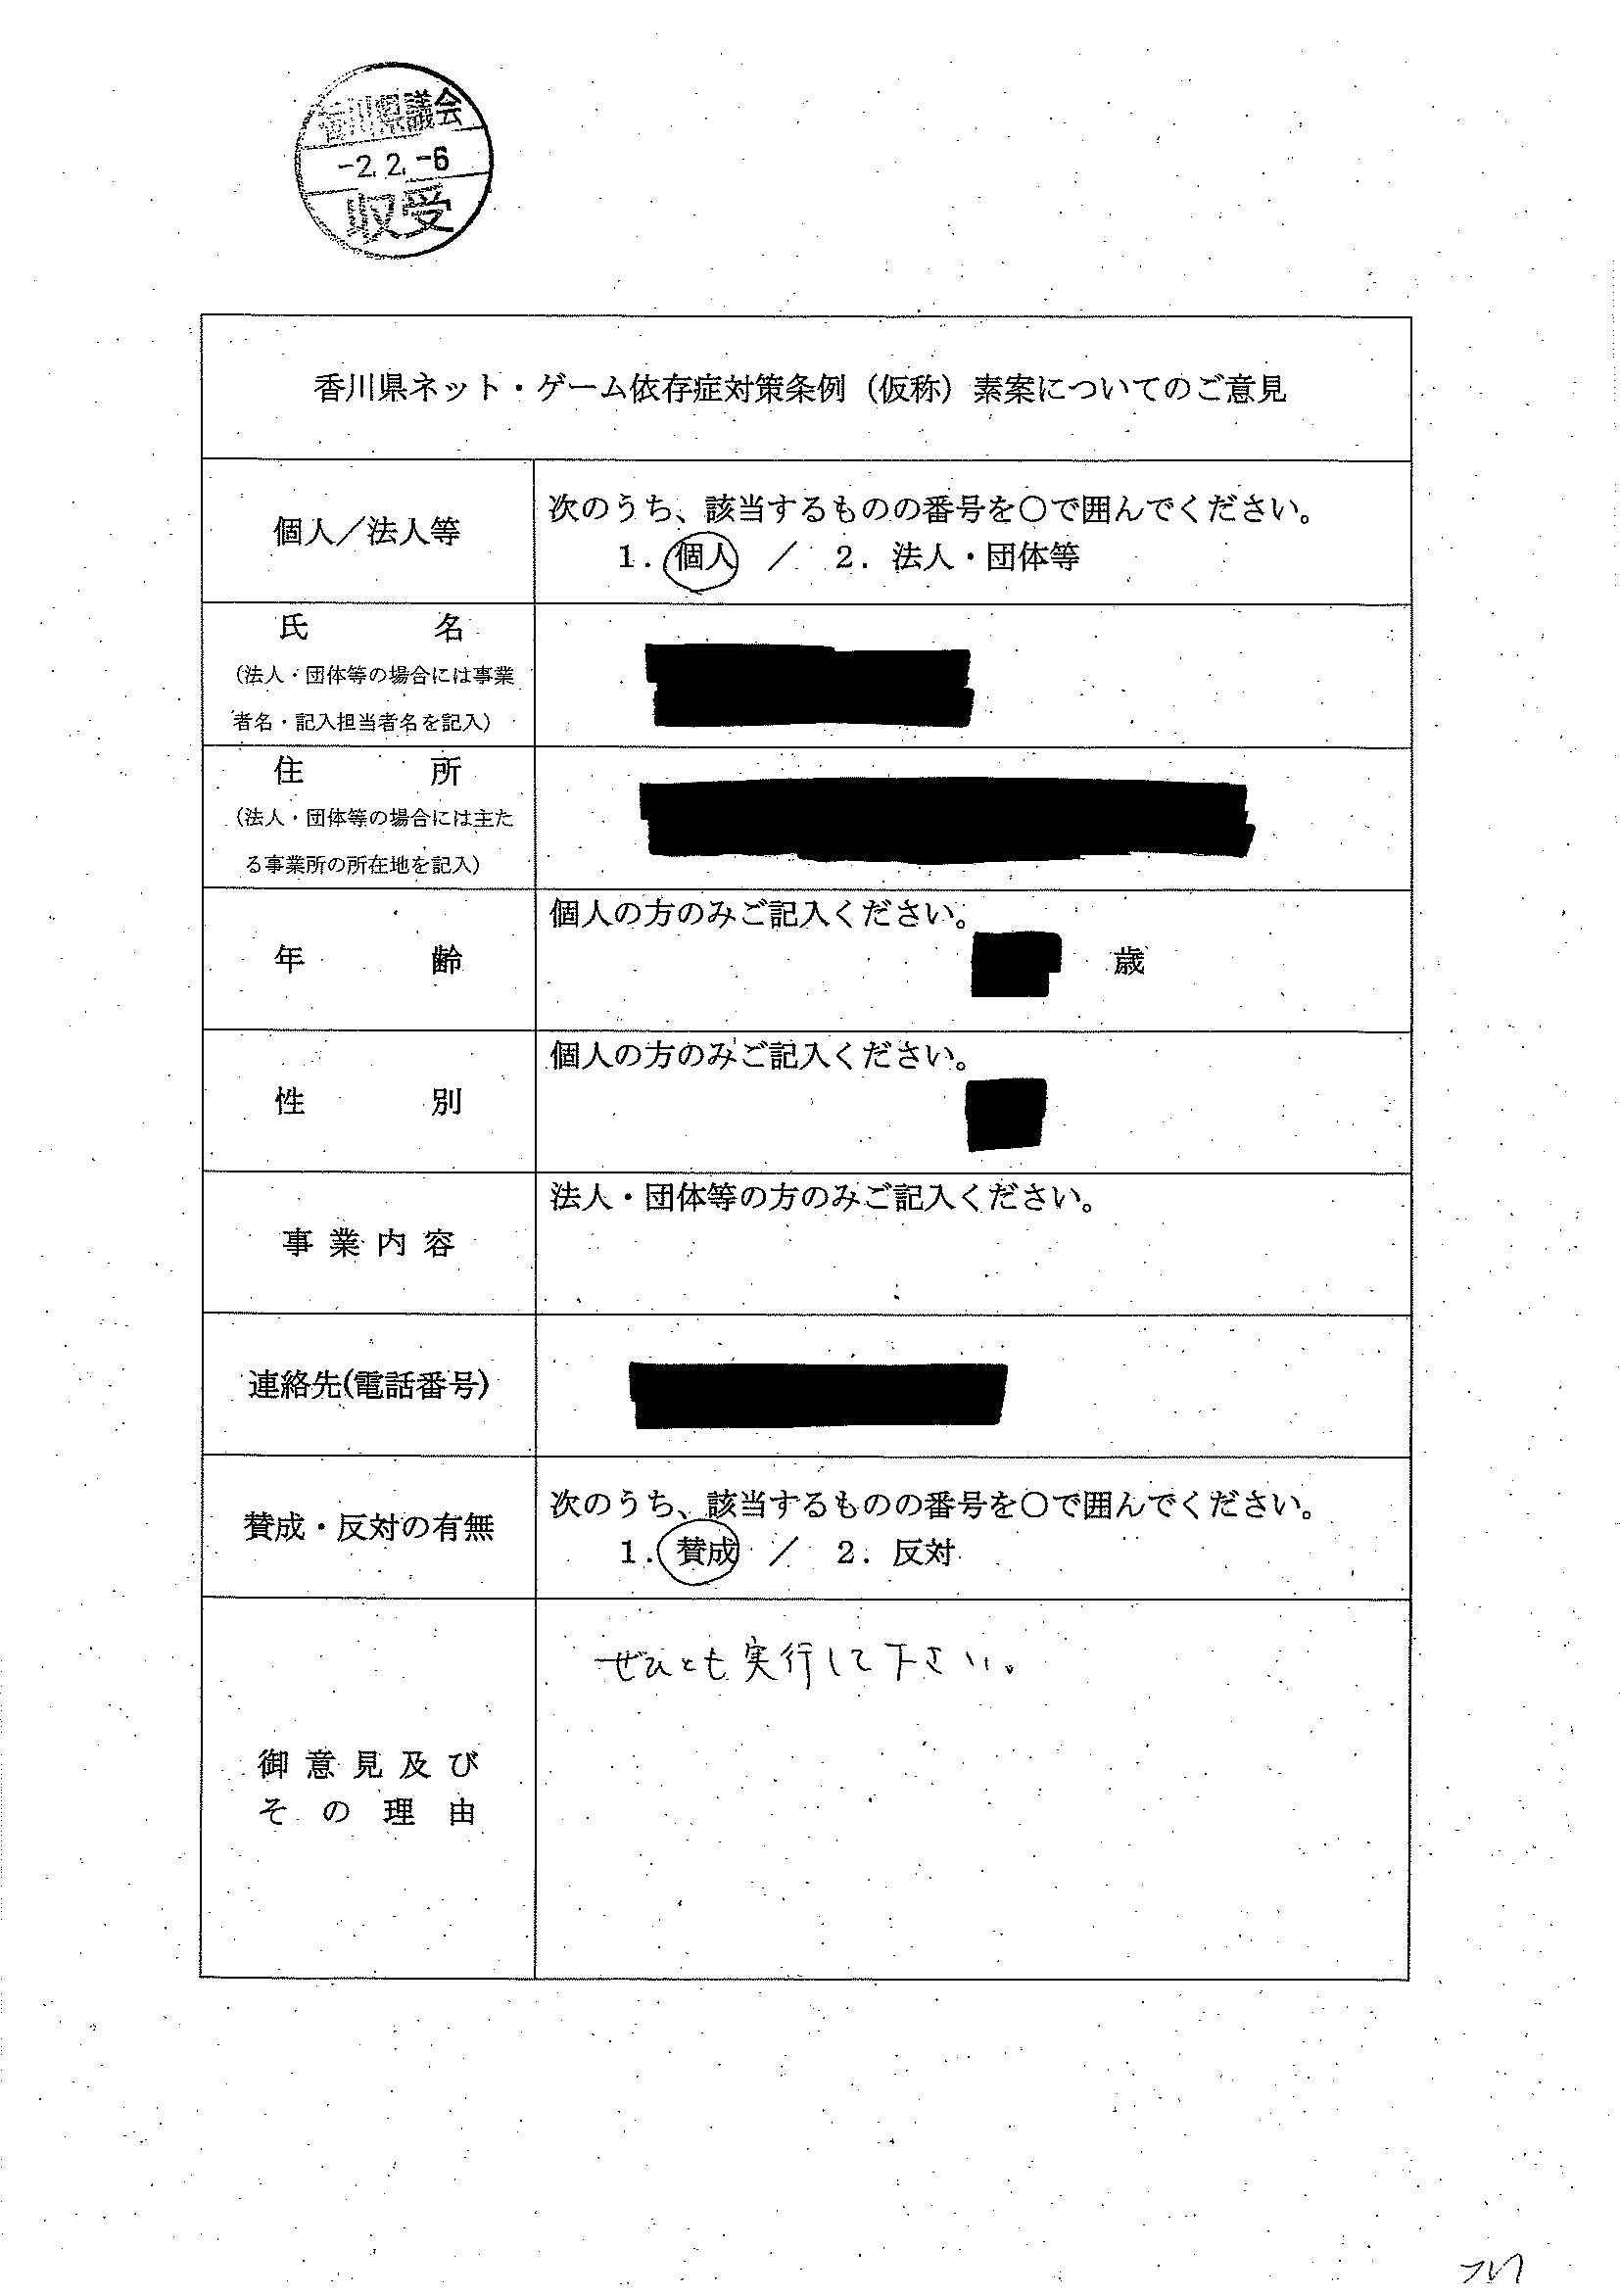 香川県議会
-2.2.-6
収受
香川県ネット・ゲーム依存症対策条例（仮称）素案についてのご意見
個人／法人等
次のうち、該当するものの番号を〇で囲んでください。
1. 個人 ／ 2. 法人・団体等
氏名
（法人・団体等の場合には事業
者名・記入担当者名を記入）
住所
（法人・団体等の場合には主た
る事業所の所在地を記入）
年齢
個人の方のみご記入ください。
歳
性別
個人の方のみご記入ください。
事業内容
法人・団体等の方のみご記入ください。
連絡先(電話番号)
賛成・反対の有無
次のうち、該当するものの番号を〇で囲んでください。
1. 賛成 ／ 2. 反対
御意見及び
その理由
ぜひとも実行して下さい。